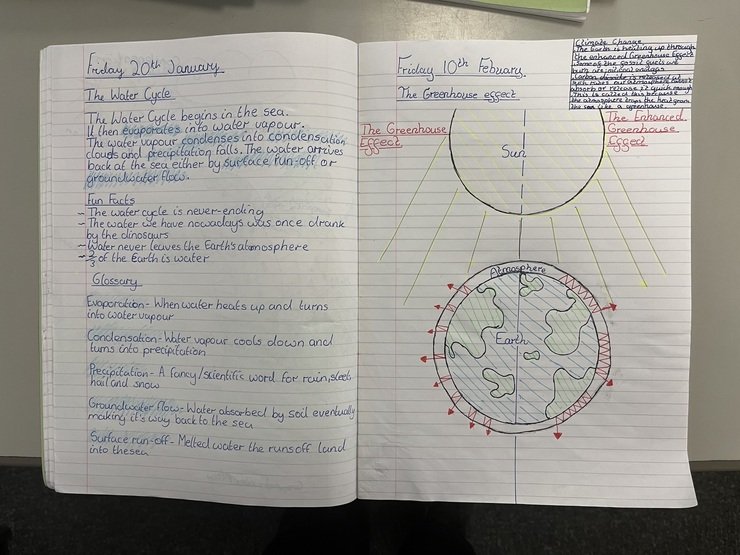 Friday 20th January
The Water Cycle
The Water Cycle begins in the sea.
It then evaporates into water vapour.
The water vapour condenses into condensation
clouds and precipitation falls. The water arrives
back at the sea either by surface run-off or
groundwater flow.
Fun Facts
- The water cycle is never-ending
- The water we have nowadays was once drank
by the dinosaurs
- Water never leaves the Earth's atmosphere
- 2/3 of the Earth is water
Glossary
Evaporation - When water heats up and turns
into water vapour
Condensation - Water vapour cools down and
turns into precipitation
Precipitation - A fancy/scientific word for rain, sleet,
hail and snow
Groundwater flow - Water absorbed by soil eventually
making it's way back to the sea
Surface run-off - Melted water the runs off land
into the sea
Friday 10th Febuary
The Greenhouse effect
Climate Change
The Earth is heating up through
the enhanced Greenhouse Effect
the fossil fuels are
burn
Carbon dioxide is released at
such rates our atmosphere cannot
absorb or release it quick enough
This is called this because
the atmosphere traps the heat from
the like a greenhouse.
The Greenhouse
Effect
The Enhanced
Greenhouse
Effect
Sun
Atmosphere
Earth